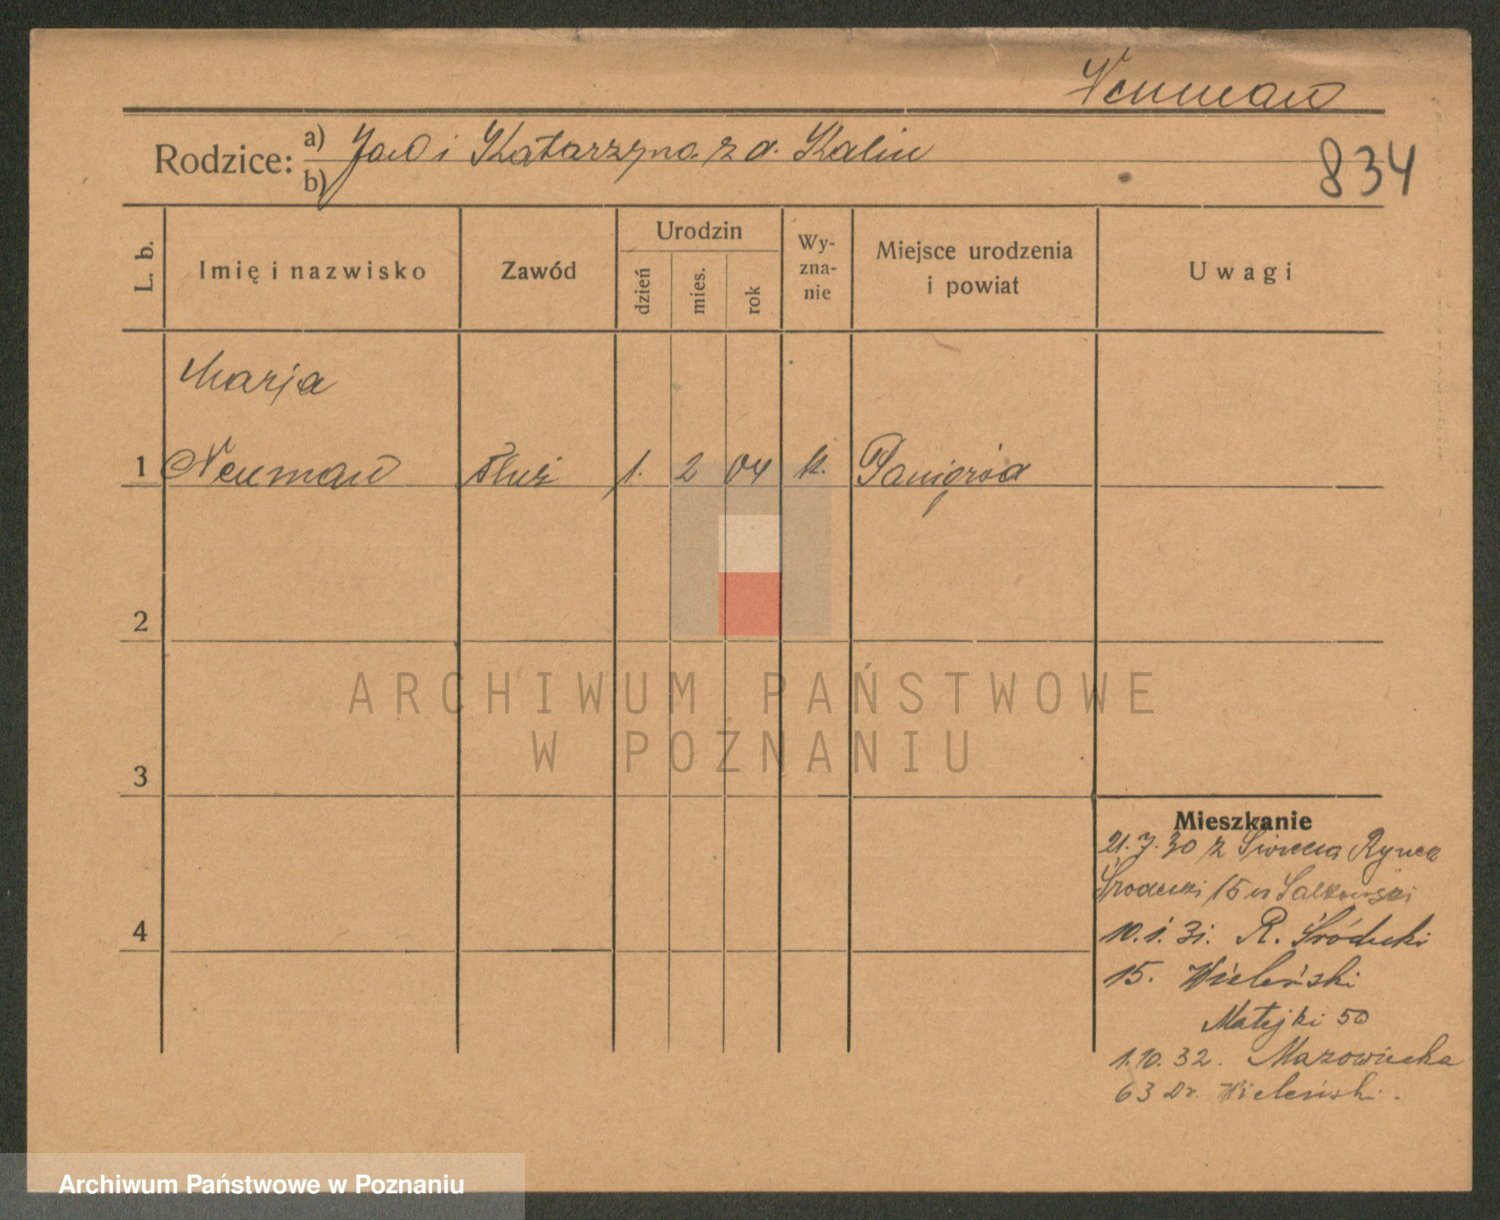 Neuman
Rodzice: a) Jan i Katarzyna z d. Kalin
b)
834
L. b.
Imię i nazwisko
Zawód
Urodzin
dzień
mies.
rok
Wy-
zna-
nie
Miejsce urodzenia
i powiat
Uwagi
Marja
1 Neuman Służ 1. 2 04 k. Panigród
2
3
4
ARCHIWUM PAŃSTWOWE
W POZNANIU
Mieszkanie
21.7.30 z Rynek
Śródecki 15
10.1.31. R. Śródecki
15. Wieleński
Matejki 50
1.10.32. Mazowiecka
63 Dr. Wieleński.
Archiwum Państwowe w Poznaniu